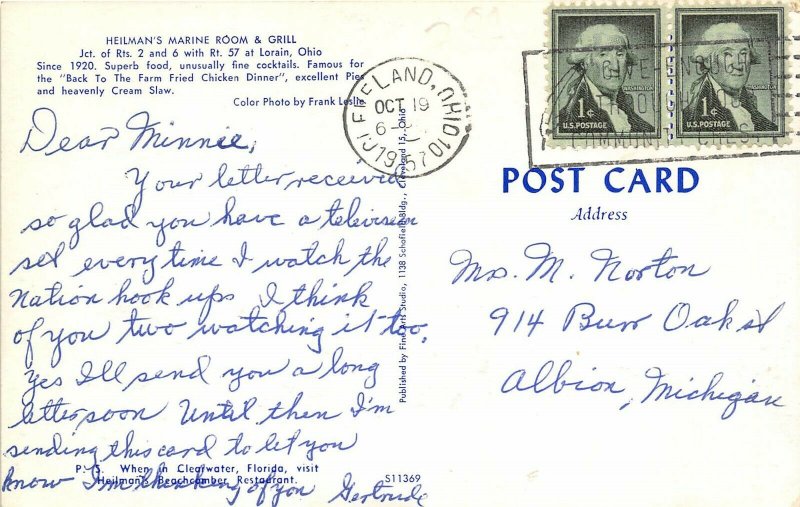 HEILMAN'S MARINE ROOM & GRILL
Jct. of Rts. 2 and 6 with Rt. 57 at Lorain, Ohio
Since 1920. Superb food, unusually fine cocktails. Famous for
the "Back To The Farm Fried Chicken Dinner", excellent Pies
and heavenly Cream Slaw.
Color Photo by Frank Leslie
Dear Minnie,
Your letter received
so glad you have a television
set every time I watch the
Nation hook ups I think
of you two watching it too,
yes I'll send you a long
letter soon Until then I'm
sending this card to let you
know I'm thinking of you Gertrude
P. S. When in Clearwater, Florida, visit
Heilman's Beachcomber Restaurant.
S11369
Published by Fine Arts Studio, 1138 Schofield Bldg., Cleveland 15, Ohio
OHIO
OCT 19
1957
1¢
WASHINGTON
U.S. POSTAGE
1¢
WASHINGTON
U.S. POSTAGE
GIVE
POST CARD
Address
Mrs. M. Norton
914 Burr Oak st
Albion, Michigan